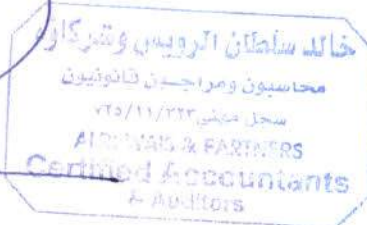 خالد سلطان الرويس وشركاؤه
محاسبون ومراجعون قانونيون
سجل مهني ٧٢٥/١١/٢٢٣
ALRUWAIS & PARTNERS
Certified Accountants
& Auditors